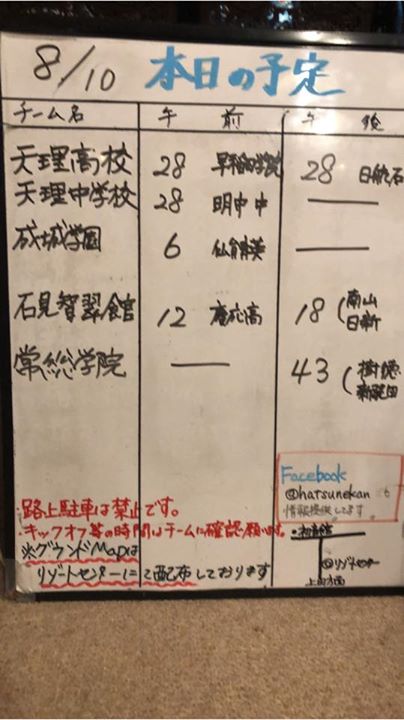 8/10 本日の予定
チーム名 午 前 午 後
天理高校 28 早稲田学院 28 日航石
天理中学校 28 明中中 —
成城学園 6 仙育英 —
石見智翠館 12 慶応高 18 (南山
日新
常総学院 — 43 (樹徳
新発田
Facebook
@hatsunekan にも
情報提供してます
・路上駐車は禁止です。
・キックオフ等の時間はチームに確認願います。
※グランドMapは
リゾートセンターにて配布しております
・初音館
リゾートセンター
上田方面